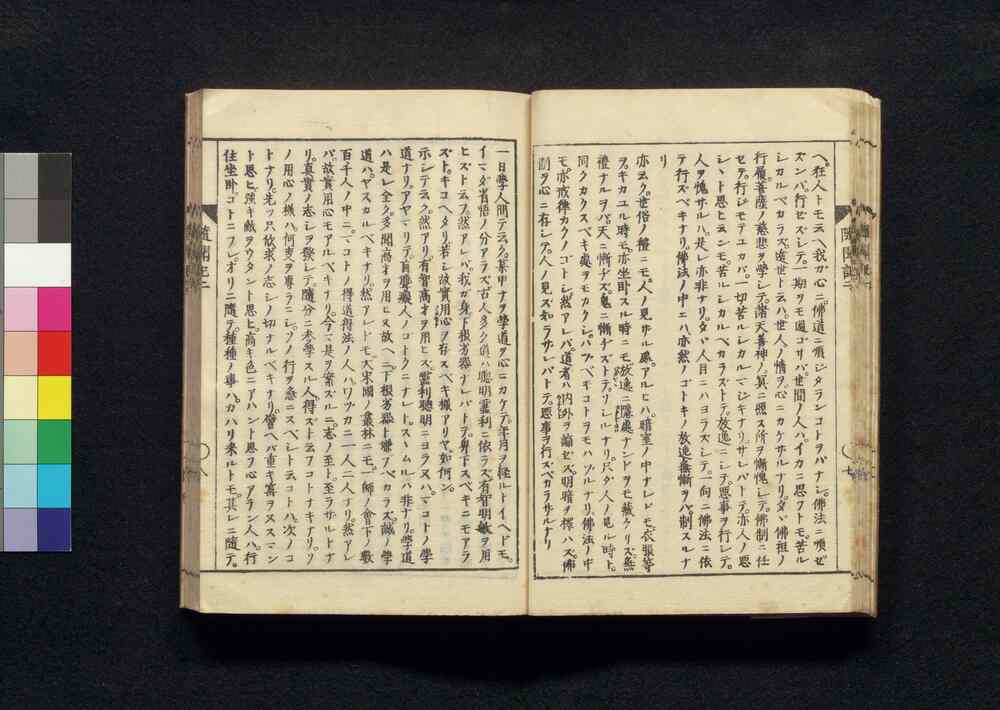 ヘ狂人トモ云ヘ我ガ心ニ佛道ニ順ジタランコトヲバナシ佛法ニ順ゼ
ズンバ行セズシテ一期ヲモ過ゴサバ世間ノ人ハイカニ思フトモ苦ル
シカルベカラズ遁世ト云ハ世人ノ情ヲ心ニカケザルナリタヾ佛祖ノ
行履菩薩ノ慈悲ヲ學シテ諸天善神ノ冥ニ照ス所ヲ慚愧シテ佛制ニ任
セテ行ジモテユカバ一切苦ルシカルマジキナリサレバトテ亦人ノ惡
シヽト思ヒ云ンモ苦ルシカルベカラズトテ放逸ニシテ惡事ヲ行シテ
人ヲ愧ザルハ是レ亦非ナリタヾ人目ニハヨラズシテ一向ニ佛法ニ依
テ行ズベキナリ佛法ノ中ニハ亦然ノゴトキノ放逸無慚ヲバ制スルナ
リ
亦云ク世俗ノ禮ニモ人ノ見ザル處アルヒハ暗室ノ中ナレドモ衣服等
ヲキカユル時モ亦坐臥スル時ニモ放逸ニ隱處ナンドヲモ藏サズ無
禮ナルヲバ天ニ慚ヂズ鬼ニ慚ヂズトテソシルナリ只ダ人ノ見ル時ト
同クカクスベキ處ヲモカクシハヅベキコトヲモハヅルナリ佛法ノ中
モ亦戒律カクノゴトシ然アレバ道者ハ内外ヲ論ゼズ明暗ヲ擇バズ佛
制ヲ心ニ存シテ人ノ見ズ知ラザレバトテ惡事ヲ行ズベカラザルナリ
一日學人問テ云ク某甲ナヲ學道ヲ心ニカケテ年月ヲ經ルトイヘドモ
イマダ省悟ノ分アラズ古人多ク道ハ聰明靈利ニ依ラズ有智明敏ヲ用
ヒズト云フ然アレバ我ガ身下根劣器ナレバトテ卑下スベキニモアラ
ズトキコヘタリ若シ故實用心ヲ存スベキ樣アリヤ如何ン
示シテ云ク然アリ有智高才ヲ用ヒズ靈利聰明ニヨラヌハマコトノ學
道ナリアヤマリテ盲聾癡人ノゴトクニナレトスヽムルハ非ナリ學道
ハ是レ全ク多聞高才ヲ用ヒヌ故ヘニ下根劣器ト嫌フベカラズ誠ノ學
道ハヤスカルベキナリ然アレドモ大宋國ノ叢林ニモ一師ノ會下ノ數
百千人ノ中ニマコトノ得道得法ノ人ハワヅカニ一人二人ナリ然アレ
バ故實用心モアルベキナリ今マ是ヲ案ズルニ志ノ至ト至ラザルトナ
リ眞實ノ志シヲ發シテ隨分ニ參學スル人得ズト云フコトナキナリソ
ノ用心ノ樣ハ何事ヲ專ラニシソノ行ヲ急ニスベシト云コトハ次ノコ
トナリ先ヅ只欣求ノ志シノ切ナルベキナリ譬ヘバ重キ寶ヲヌスマン
ト思ヒ強キ敵ヲウタント思ヒ高キ色ニアハント思フ心アラン人ハ行
住坐臥コトニフレオリニ隨テ種種ノ事ハカハリ來ルトモ其レニ隨テ
隨聞記二